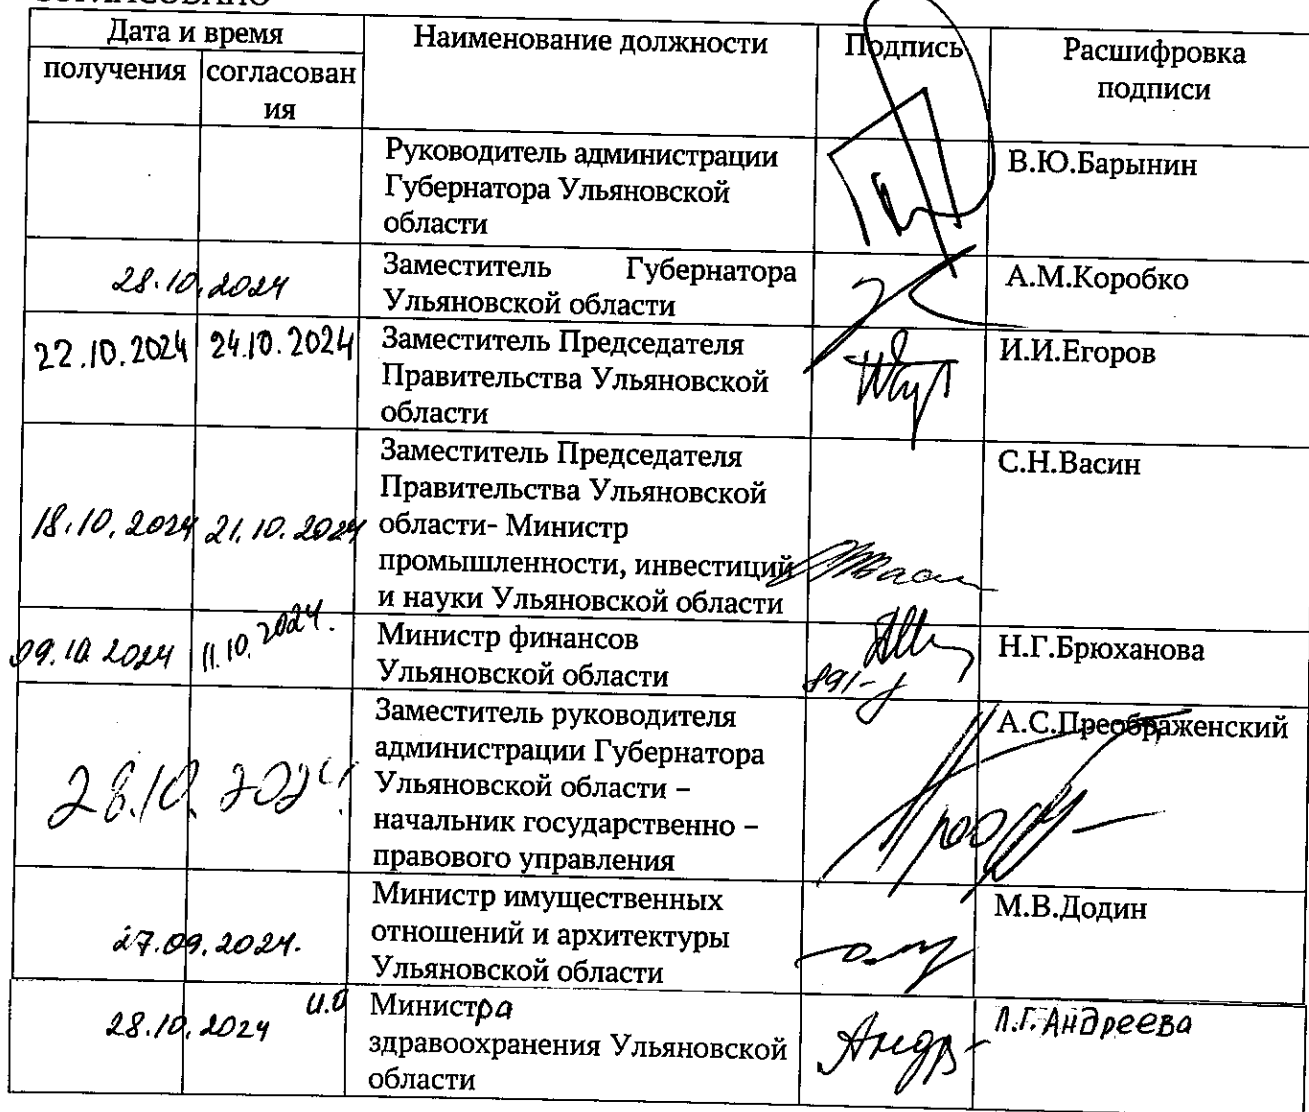 СОГЛАСОВАНО
Дата и время
Наименование должности
Подпись
Расшифровка
подписи
получения
согласован
ия
Руководитель администрации
Губернатора Ульяновской
области
В.Ю.Барынин
28.10.2024
Заместитель Губернатора
Ульяновской области
А.М.Коробко
22.10.2024
24.10.2024
Заместитель Председателя
Правительства Ульяновской
области
И.И.Егоров
18.10.2024
21.10.2024
Заместитель Председателя
Правительства Ульяновской
области- Министр
промышленности, инвестиций
и науки Ульяновской области
С.Н.Васин
09.10.2024
11.10.2024.
Министр финансов
Ульяновской области
Н.Г.Брюханова
28.10.2024
Заместитель руководителя
администрации Губернатора
Ульяновской области –
начальник государственно –
правового управления
А.С.Преображенский
27.09.2024.
Министр имущественных
отношений и архитектуры
Ульяновской области
М.В.Додин
28.10.2024
и.о Министра
здравоохранения Ульяновской
области
Андр
Л.Г.Андреева